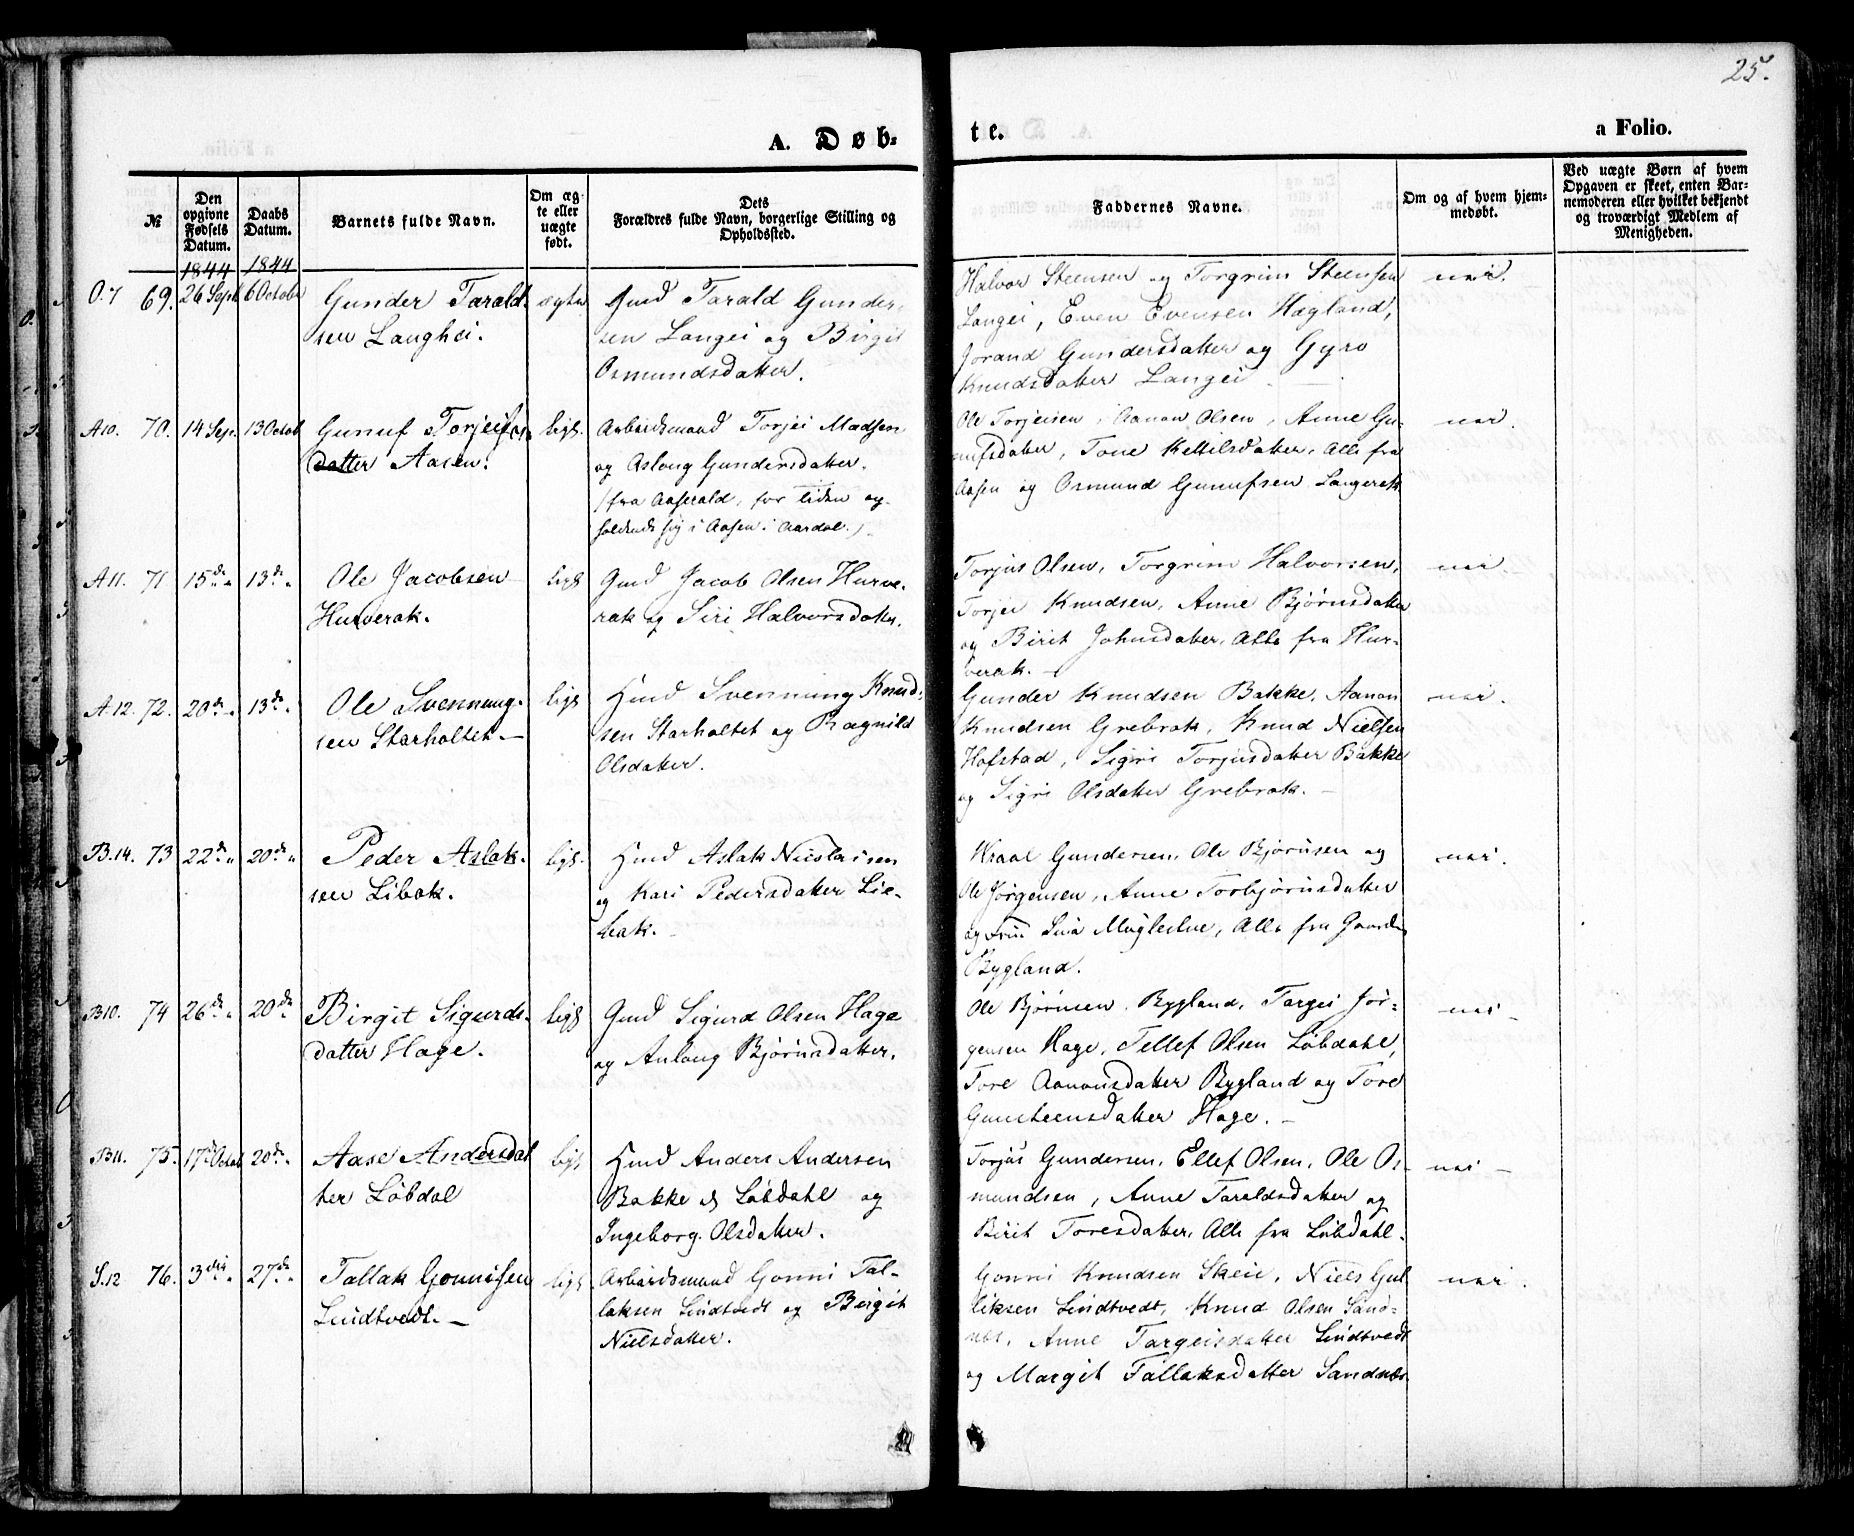 25.
A. Døb-
te.
a Folio.
№
Den opgivne Fødsels Datum.
Daabs Datum.
Barnets fulde Navn.
Om ægte eller uægte født.
Dets Forældres fulde Navn, borgerlige Stilling og Opholdssted.
Faddernes Navne.
Om og af hvem hjemmedøbt.
Ved uægte Børn af hvem Opgaven er skeet, enten Barnemoderen eller hvilket bekjendt og troværdigt Medlem af Menigheden.
1844 1844
O.7 69. 26 Sept 6 Octobr Gunder Tarald-
sen Langhei.
ægte
Gmd Tarald Gunder-
sen Langei og Birgit
Osmundsdatter.
Halvor Steensen og Torgrim Steensen
Langei, Even Evensen Hægland,
Jorand Gundersdatter og Gyro
Knudsdatter Langei
nei.
A10. 70. 14 Sep. 13 Octob Gunuf Torjeisen
datter Aasen.
ligs.
Arbeidsmand Torjei Madsen
og Asloug Gundersdatter.
(fra Aaserald, for tiden op-
holdende sig i Aasen i Aardal.)
Ole Torjeisen, Aanon Olsen, Anne Gu-
nufsdatter, Tone Kettilsdatter, Alle fra
Aasen og Osmund Gunufsen Langerak
nei.
A11. 71 15de " 13de " Ole Jacobsen
Hurverak.
ligs
Gmd Jacob Olsen Hurve-
rak og Siri Halvorsdatter.
Torjus Olsen, Torgrim Halvorsen,
Torjei Knudsen, Anne Bjørnsdatter
og Birit Johnsdatter, Alle fra Hur-
verak.
nei.
A.12. 72. 20de " 13de " Ole Svennung-
sen Starholtet.
ligs
Hmd Svennung Knud-
sen Starholtet og Ragnild
Olsdatter.
Gunder Knudsen Bakke, Aanon
Knudsen Grebrok, Knud Nielsen
Hofstad, Sigri Torjusdatter Bakke
og Sigri Olsdatter Grebrok.
nei.
B.14. 73 22de " 20de " Peder Aslak-
sen Libak.
ligs.
Hmd Aslak Nicolaisen
og Kari Pedersdatter Lie-
bak.
Gundersen, Ole Bjørnsen og
Ole Jørgensen, Anne Torbjørnsdatter
og Alle fra Gaarden
Bygland.
nei.
B10. 74 26de " 20de Birgit Sigurds-
datter Hage.
ligs
Gmd Sigurd Olsen Hage
og Anlaug Bjørnsdatter.
Ole Bjørnsen Bygland, Targei Jør-
gensen Hage, Tellef Olsen Løbdahl,
Tore Aanonsdatter Bygland og Tore
Gunsteensdatter Hage.
nei
B11. 75. 17de Octob 20de " Aase Andersdat
ter Løbdal
ligs
Hmd Anders Andersen
Bakke Løbdahl og
Ingeborg Olsdatter.
Torjus Gundersen, Ellef Olsen, Ole Os-
mundsen, Anne Taraldsdatter og
Birit Toresdatter, Alle fra Løbdahl.
nei
S.12 76. 3die " 27de " Tallak Gonnisen
Lindtvedt.
ligs
Arbeidsmand Gonni Tal-
laksen Lindtvedt og Birgit
Nielsdatter.
Gonni Knudsen Skeie, Niels Gul
liksen Lindtvedt, Knud Olsen Sand-
nes, Anne Targeisdatter Lindtvedt
og Margit Tallaksdatter Sandnes
nei.